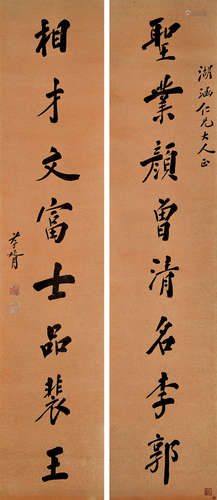 湖涵仁兄大人正
聖業顏曾清名李郭
相才文富士品裴王
孝胥